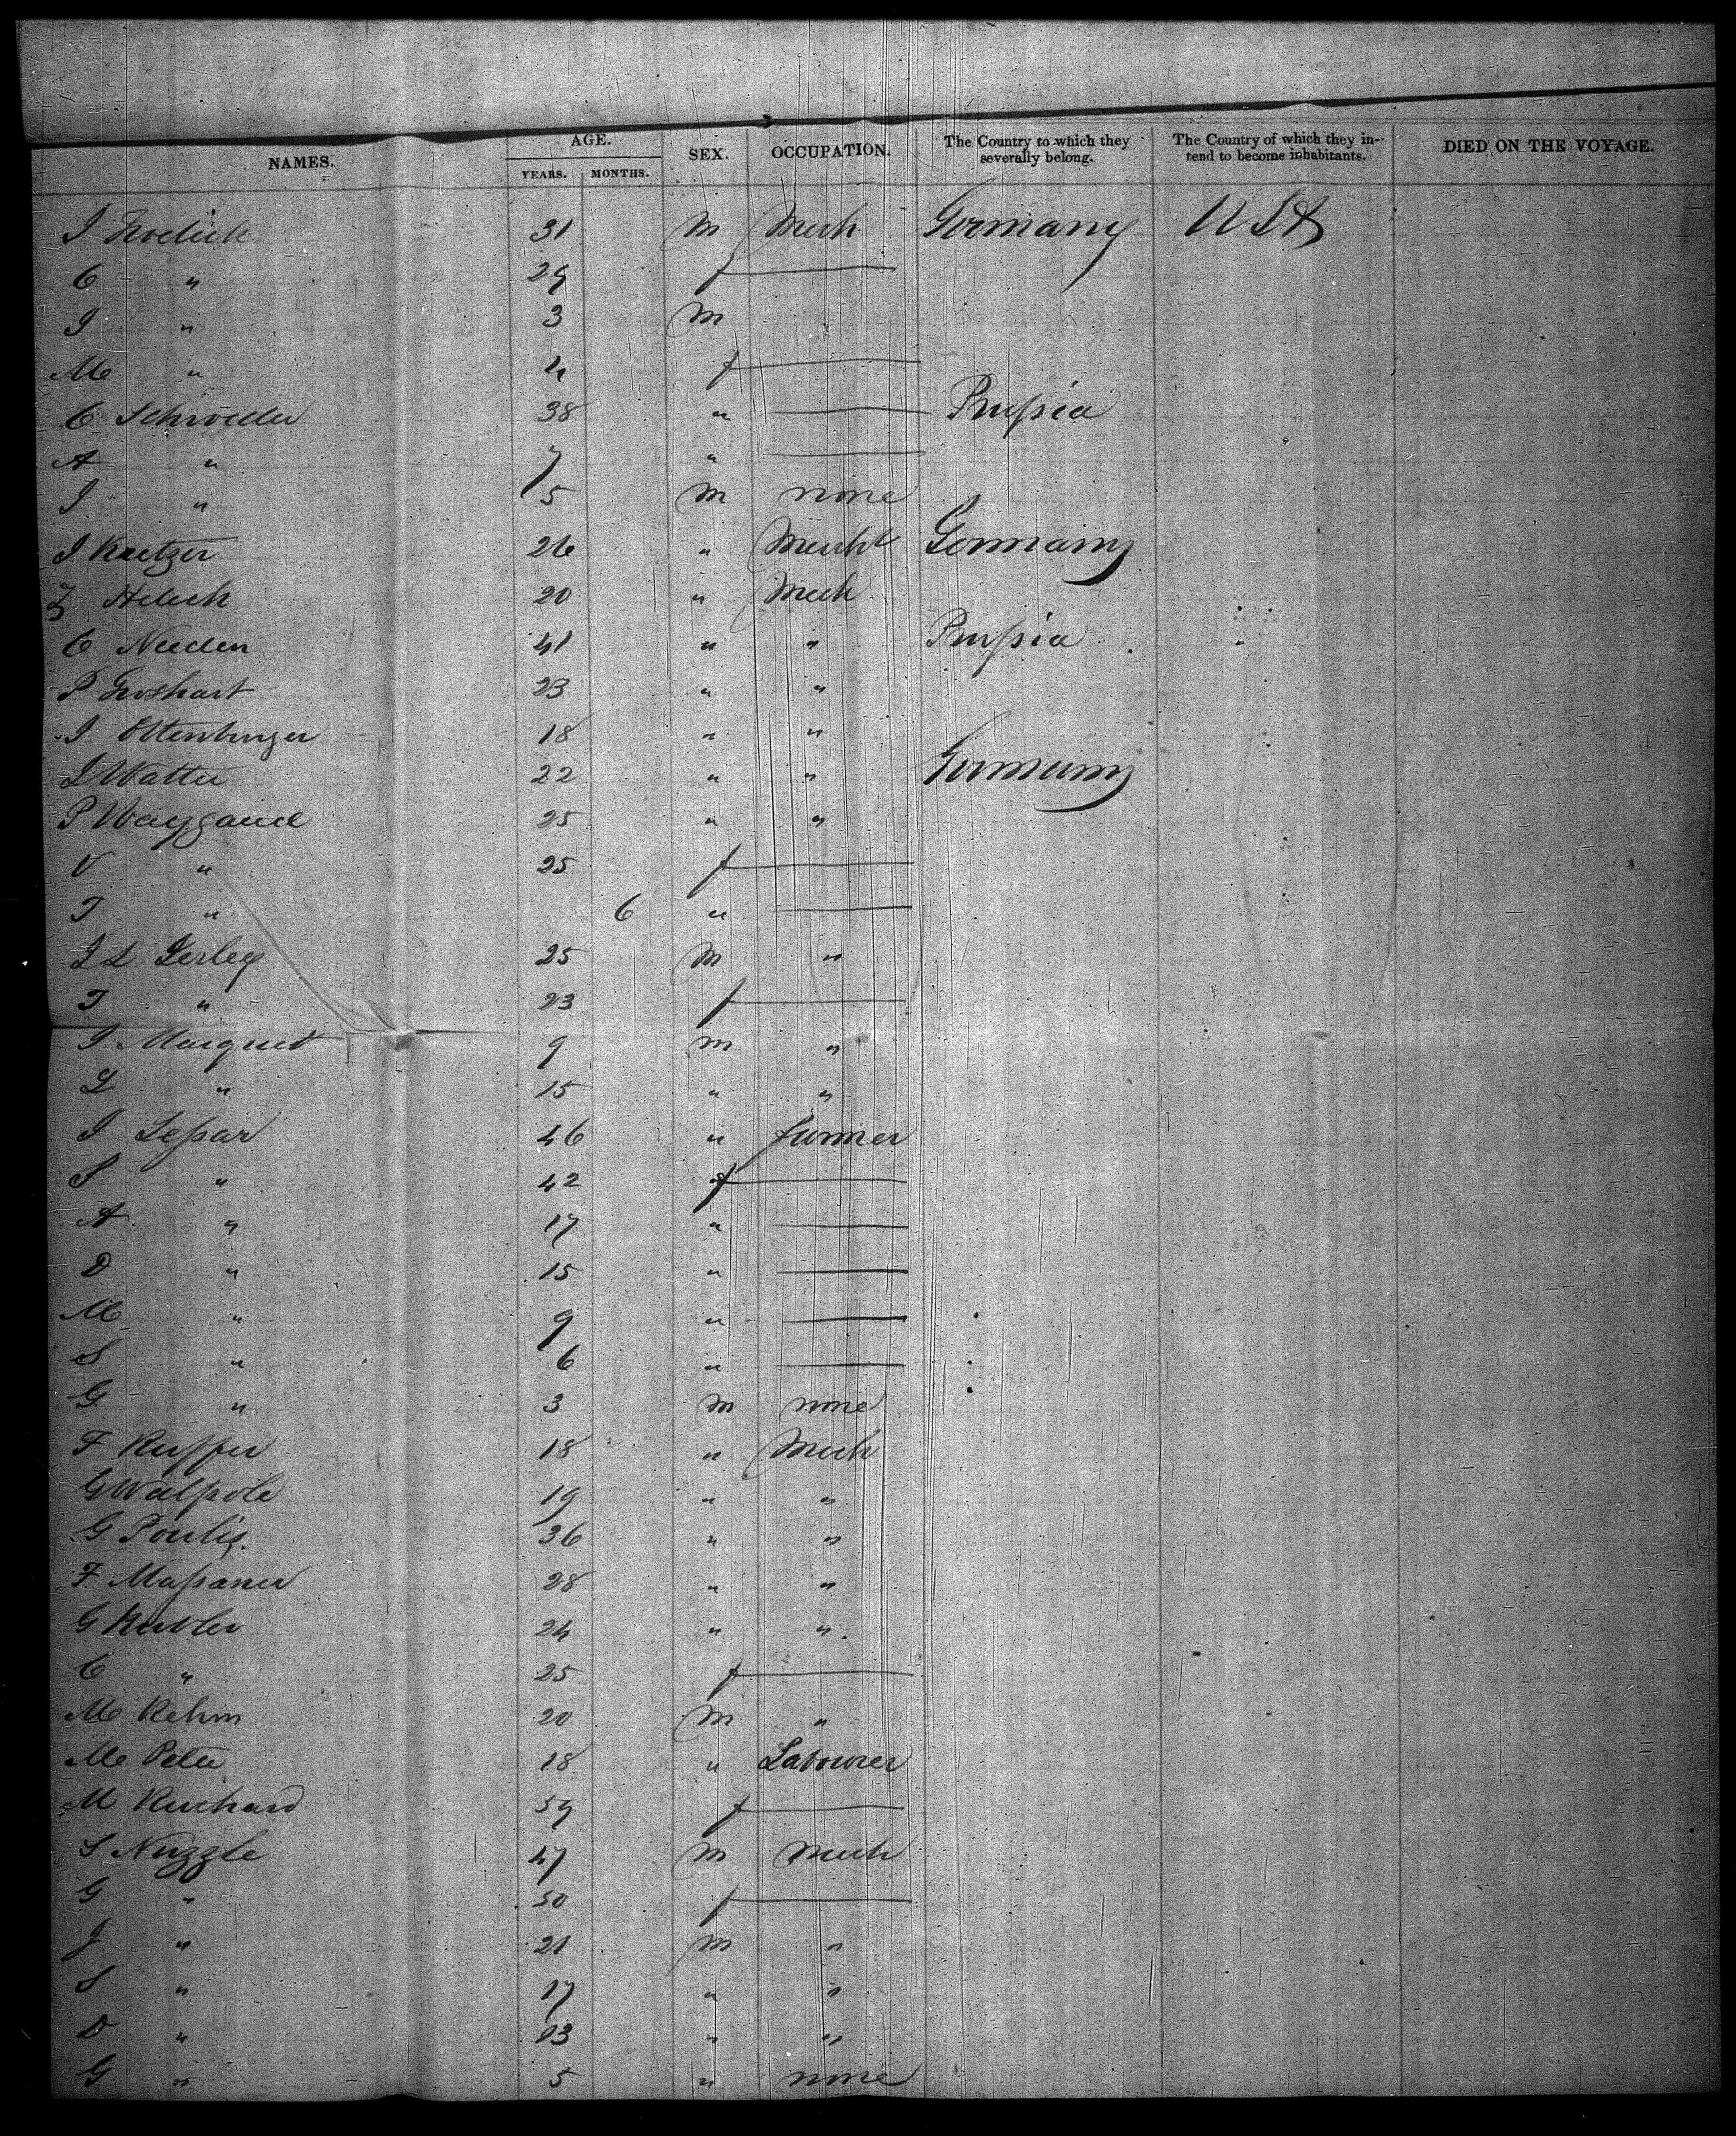 NAMES. AGE. SEX. OCCUPATION. The Country to which they severally belong. The Country of which they intend to become inhabitants. DIED ON THE VOYAGE.
YEARS. MONTHS.
I 31 m Mech Germany USA
C " 29 f —
I " 3 m
M " 4 f —
C Schroeder 38 " — Prussia
A " 7 " —
I " 5 m none
I Kretzer 26 " Mercht Germany
20 " Mech
C 41 " " Prussia
P Groshart 23 " "
I Ottenberger 18 " "
L Walter 22 " " Germany
P Waygand 25 " "
V " 25 f —
T " 6 " —
I L Lesley 25 m "
T " 23 f —
I Marquet 9 m "
L " 15 " "
I Lessar 46 " farmer
S " 42 f —
A " 17 " —
D " 15 " —
M " 9 " —
S " 6 " —
G " 3 m none
F Kupfer 18 " Mech
G Walpole 19 " "
G Poulis 36 " "
F Massaner 28 " "
G Kubler 24 " "
C " 25 f —
M Rehm 20 m "
M Peter 18 " Labourer
M 59 f —
S Nuzzle 47 m mech
G " 50 f —
J " 21 m "
S " 17 " "
D " 13 " "
G " 5 " none